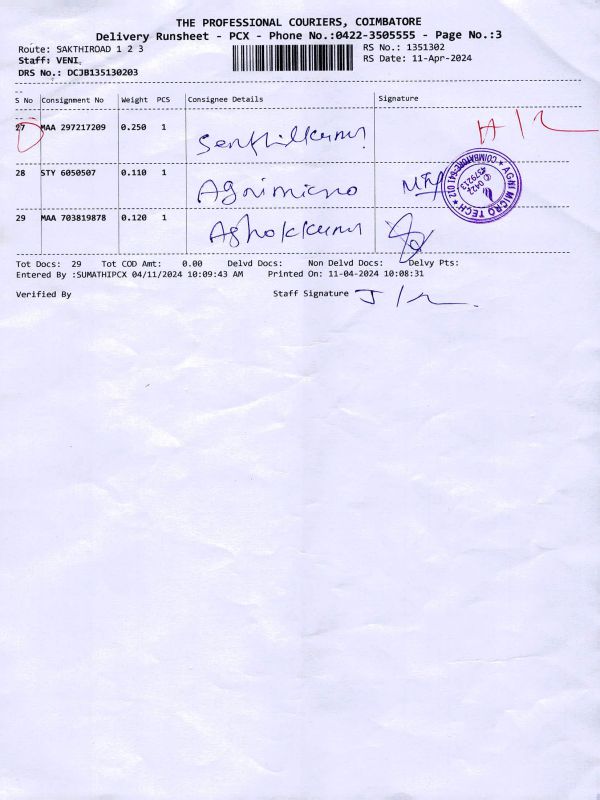 THE PROFESSIONAL COURIERS, COIMBATORE
Delivery Runsheet - PCX - Phone No.:0422-3505555 - Page No.:3
Route: SAKTHIROAD 1 2 3
RS No.: 1351302
Staff: VENI.
RS Date: 11-Apr-2024
DRS No.: DCJB135130203
S No Consignment No Weight PCS Consignee Details Signature
27 MAA 297217209 0.250 1 Senthilkumar
28 STY 6050507 0.110 1 Agnimicro
AGNI MICRO TECH * COIMBATORE-641 012 *
✆ 0422
4579213
29 MAA 703819878 0.120 1 Ashokkumar
Tot Docs: 29 Tot COD Amt: 0.00 Delvd Docs: Non Delvd Docs: Delvy Pts:
Entered By :SUMATHIPCX 04/11/2024 10:09:43 AM Printed On: 11-04-2024 10:08:31
Verified By Staff Signature